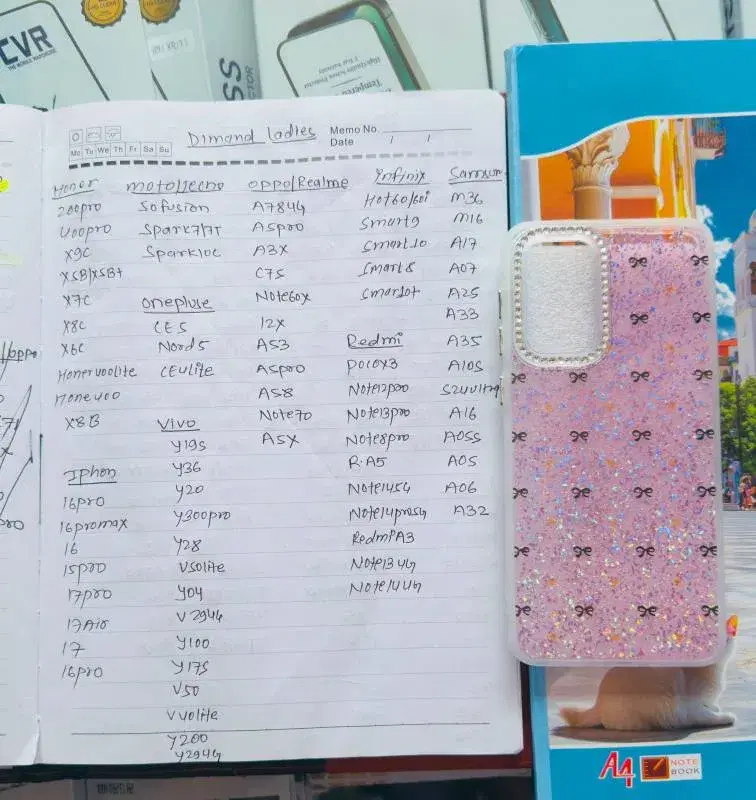 CVR
THE MOBILE WARDROBE
Tempered
SS
Mo Tu We Th Fr Sa Su
Dimand Ladies
Memo No.
Date / /
Honer
200pro
400pro
X9C
X5B/X5B+
X7C
X8C
X6C
Honer400lite
Honer400
X8B
Iphon
16pro
16promax
16
15pro
17pro
17Air
17
16pro
moto/Tecno
50fusion
Spark7/7T
Spark10C
Onepluse
CE5
Nord5
CE4lite
Vivo
Y19S
Y36
Y20
Y300pro
Y28
V50lite
Y04
V294G
Y100
Y17S
V50
V40lite
Y200
Y294G
Oppo/Realme
A784G
A5pro
A3X
C75
Note60X
12X
A53
A5pro
A58
Note70
A5X
Infinix
Hot60/60i
Smart9
Smart10
Smart8
Smart10+
Redmi
Pocox3
Note12pro
Note13pro
Note8pro
R.A5
Note145G
Note14pro5G
RedmiA3
Note134G
Note144G
Samsun
M36
M16
A17
A07
A25
A33
A35
A10S
S24ultra
A16
A05S
A05
A06
A32
A4
NOTE
BOOK